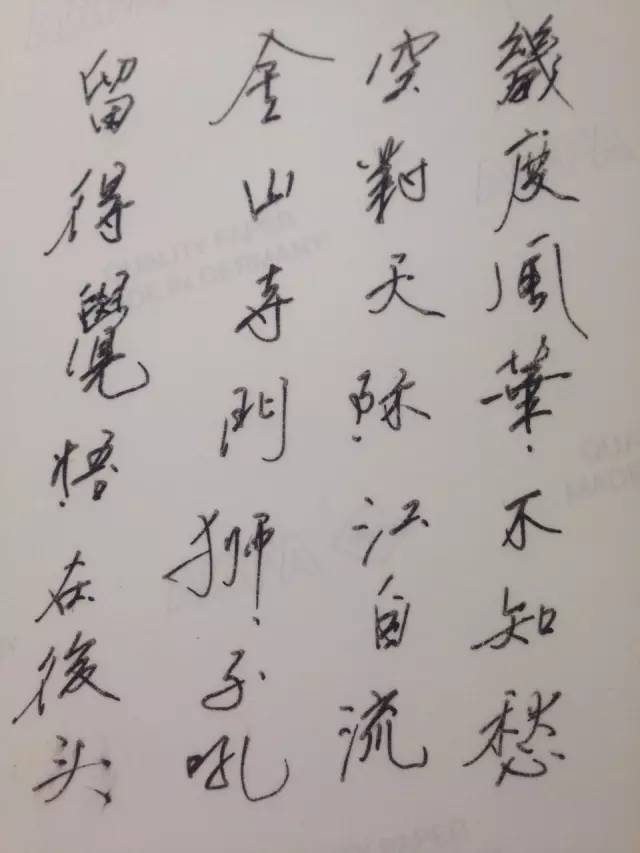 幾度風華不知愁
空對天際江自流
金山寺門狮子吼
留得覺悟在後头
QUALITY PAPER
MADE IN GERMANY